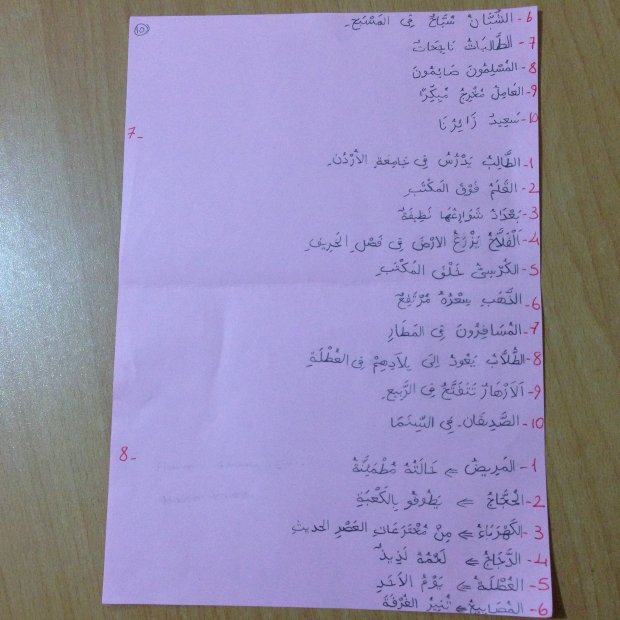 10
6- الشَّبَّانُ سُبَّاحٌ فِي المَسْبَحِ.
7- الطَّالِبَاتُ نَاجِحَاتٌ
8- المُسْلِمُونَ صَائِمُونَ
9- العَامِلُ مُبَكِّرٌ
10- سَعِيدٌ زَائِرُنَا
7-
1- الطَّالِبُ يَدْرُسُ فِي جَامِعَةِ الأُرْدُن.
2- القَلَمُ فَوْقَ المَكْتَبِ
3- بَغْدَادُ شَوَارِعُهَا نَظِيفَةٌ
4- اَلْفَلَّاحُ يَزْرَعُ الأرْضَ فِي فَصْلِ الخَرِيفِ.
5- الكُرْسِيُّ خَلْفَ المَكْتَبِ
6- الذَّهَب سِعْرُهُ مُرْتَفِعٌ
7- المُسَافِرُونَ فِي المَطَارِ
8- الطُّلَّابُ يَعُودُ اِلَى بِلَادِهِمْ فِي العُطْلَةِ
9- اَلاَزْهَارُ تَتَفَتَّحُ فِي الرَّبِيعِ.
10- الصَّدِيقَانِ فِي السِّينَمَا
8-
1- المَرِيضُ => حَالَتُهُ مُطْمَئِنَّةٌ
2- الحُجَّاجُ => يَطُوفُو بِالكَعْبَةِ
3- الكَهْرَبَاءُ => مِنْ مُخْتَرَعَاتِ العَصْرِ الحديث
4- الدَّجَاجُ => لَحْمُهُ لَذِيذٌ
5- العُطْلَةُ => يَوْمُ الاَحَدِ
6- المَصَابِيحُ => تُنِيرُ الغُرْفَةَ